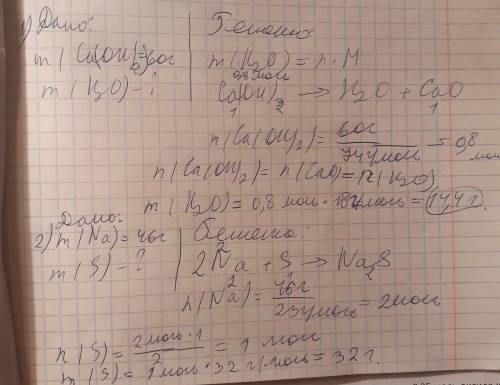 1) Дано:
Решение
m(Ca(OH)2)=60г
m(H2O) = n·M
m(H2O)-?
0,8 моль
Ca(OH)2 → H2O + CaO
1 1
n(Ca(OH)2) = 60г / 74г/моль = 0,8 моль
n(Ca(OH)2) = n(CaO) = n(H2O)
m(H2O) = 0,8 моль · 18г/моль = 14,4г.
Дано:
Решение:
2) m(Na) = 46г
m(S) - ?
2Na + S → Na2S
n(Na) = 46г / 23г/моль = 2моль
n(S) = 2моль·1 / 2 = 1 моль
m(S) = 1моль·32 г/моль = 32г.